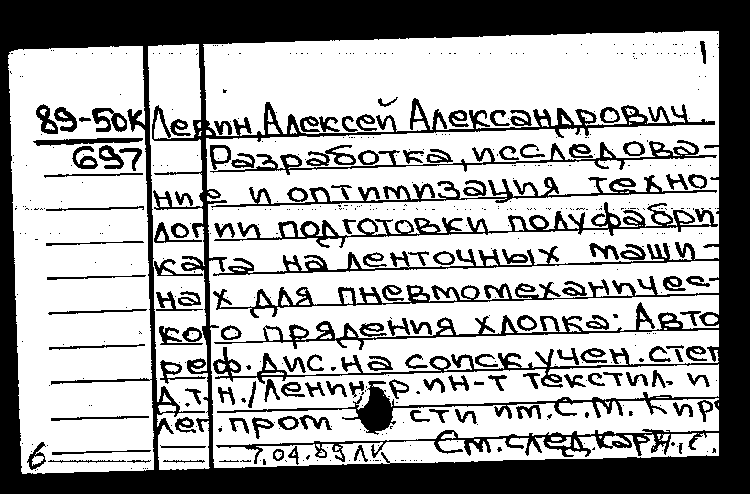 1
89-50К Левин, Алексей Александрович.
697 Разработка, исследова-
ние и оптимизация техно-
логии подготовки полуфабри
ката на ленточных маши-
нах для пневмомеханичес-
кого прядения хлопка: Авто
реф. дис. на соиск. учен. степ
д.т.н./Ленингр. ин-т текстил. и
лег. пром-сти им. С.М. Киро
См. след. карт.
6 7.04.89 ЛК